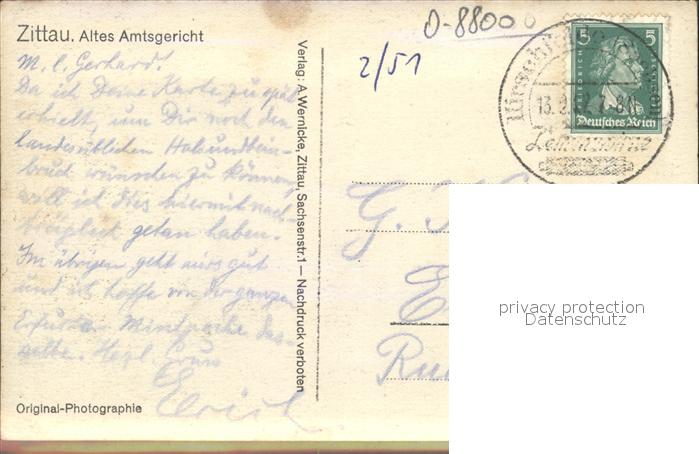 Zittau. Altes Amtsgericht
D-8800
2/51
M. l. Gerhard!
Da ich Deine Karte zu spät
erhielt, um Dir noch den
landesüblichen Hals und Bein-
bruch wünschen zu können,
will ich dies hiermit nach-
träglich getan haben.
Im übrigen geht mirs gut
und ich hoffe von der ganzen
Erfurter
selbe. Herzl. Gruss
Erich
Original-Photographie
Verlag: A. Wernicke, Zittau, Sachsenstr. 1 — Nachdruck verboten
5 5
FRIEDRICH
Deutsches Reich
13.9.
G.
E
Ru
privacy protection
Datenschutz